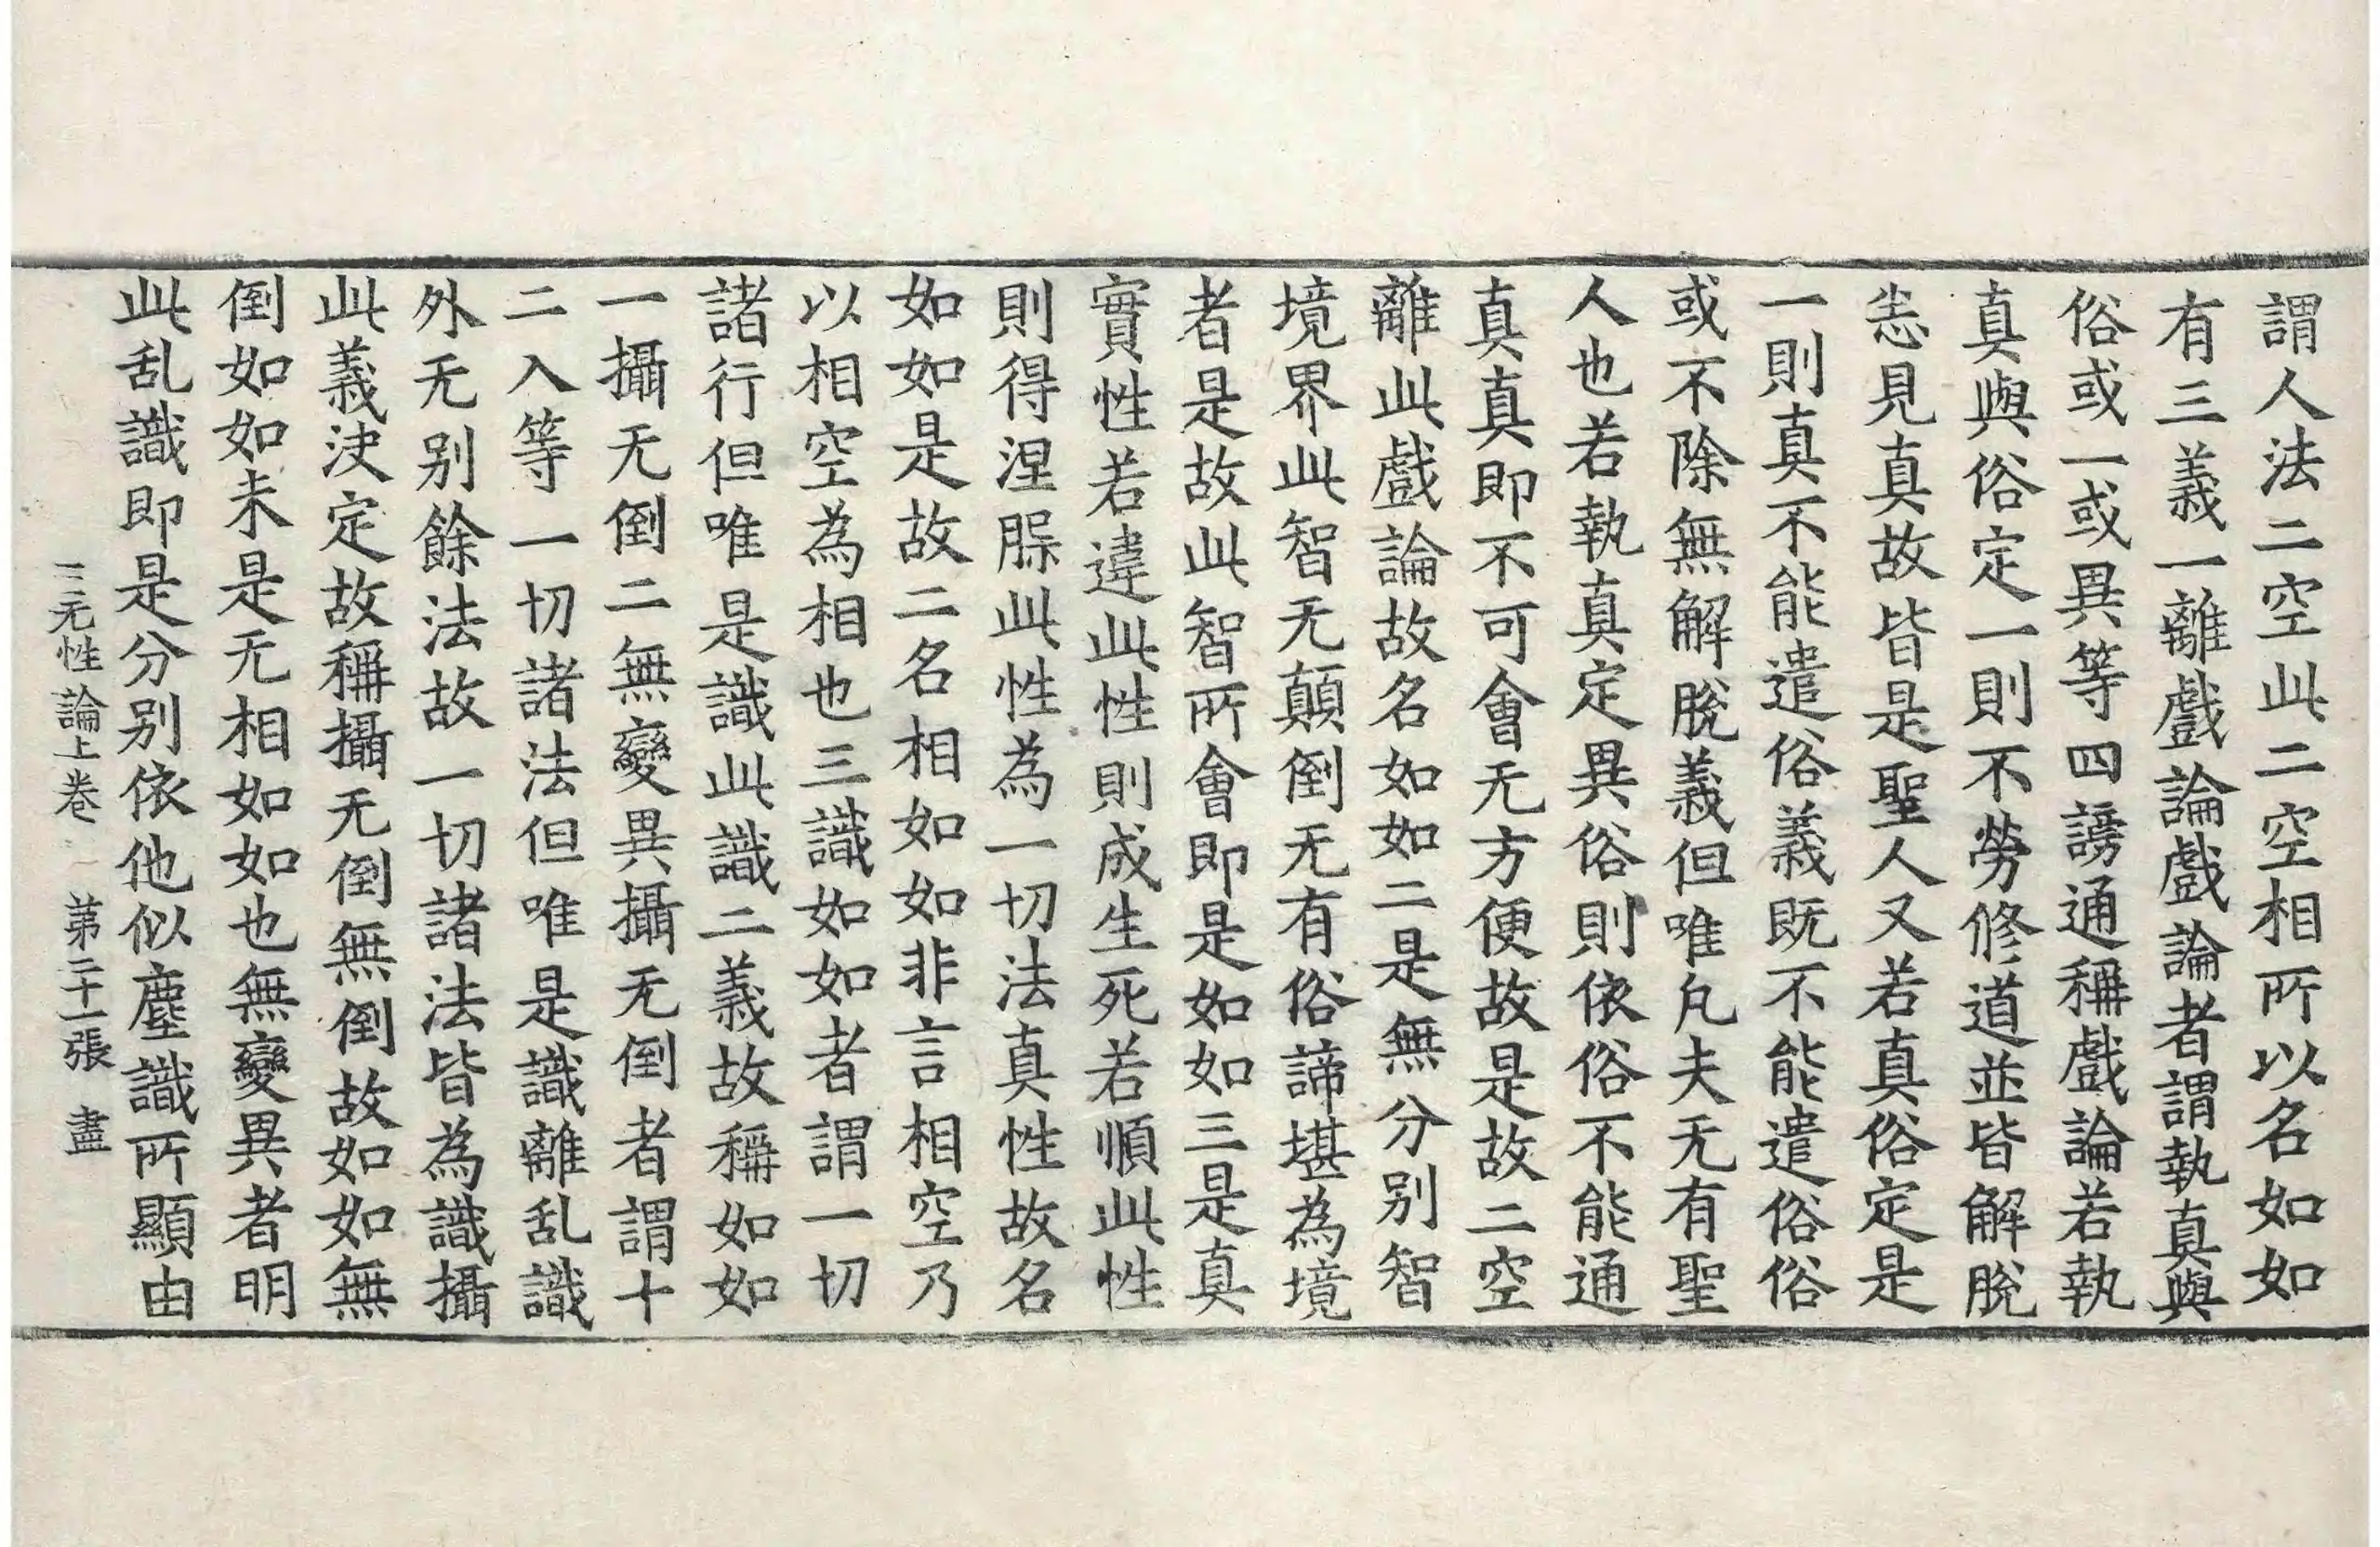 謂人法二空此二空相所以名如如
有三義一離戲論戲論者謂執真與
俗或一或異等四謗通稱戲論若執
真與俗定一則不勞修道並皆解脫
恙見真故皆是聖人又若真俗定是
一則真不能遣俗義既不能遣俗俗
或不除無解脫義但唯凡夫无有聖
人也若執真定異俗則依俗不能通
真真即不可會无方便故是故二空
離此戲論故名如如二是無分别智
境界此智无顛倒无有俗諦堪為境
者是故此智所會即是如如三是真
實性若違此性則成生死若順此性
則得涅槃此性為一切法真性故名
如如是故二名相如如非言相空乃
以相空為相也三識如如者謂一切
諸行但唯是識此識二義故稱如如
一攝无倒二無變異攝无倒者謂十
二入等一切諸法但唯是識離乱識
外无别餘法故一切諸法皆為識攝
此義决定故稱攝无倒無倒故如如無
倒如如未是无相如如也無變異者明
此乱識即是分别依他似塵識所顯由
三无性論上卷 第二十一張 盡